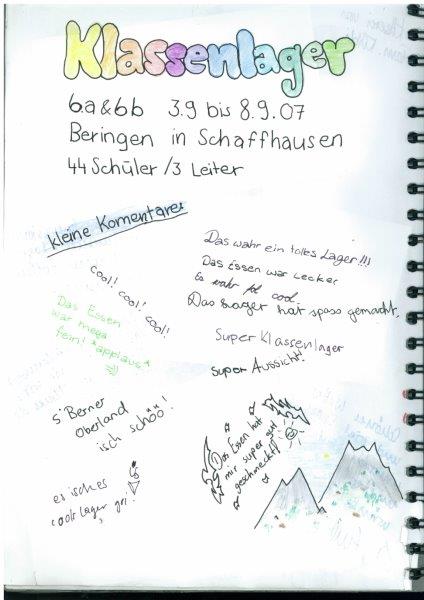 Klassenlager
6a & 6b 3.9 bis 8.9.07
Beringen in Schaffhausen
44 Schüler / 3 Leiter
kleine Komentare
Das wahr ein tolles Lager!!!
Das Essen war Lecker
Es wahr cool
Das Lager hat spass gemacht.
cool! cool! cool!
Das Essen
war mega
fein! *applaus*
Super Klassenlager
super Aussicht!
S'Berner
Oberland
isch schöö!
Das Essen hat
mir super gut
geschmeckt!!
es isches
cools Lager